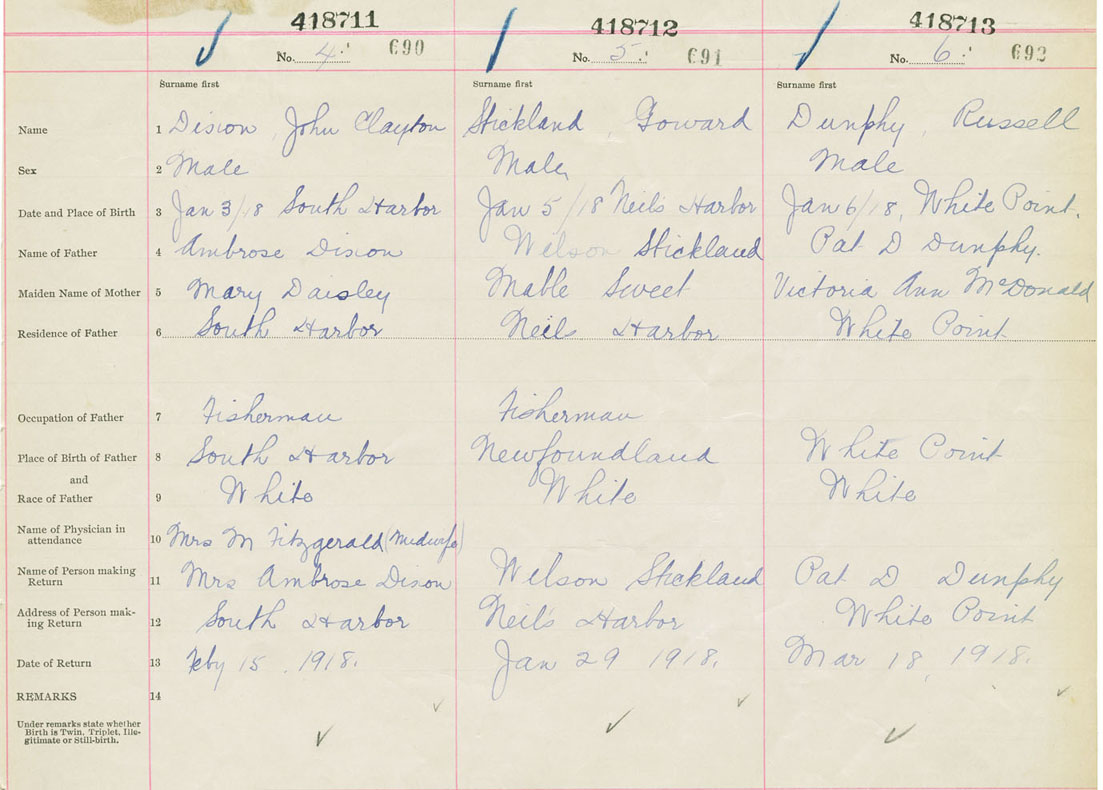 418711 418712 418713
No. 4 690 No. 5 691 No. 6 692
Surname first Surname first Surname first
Name 1 Dixon, John Clayton Stickland, Goward Dunphy, Russell
Sex 2 Male Male Male
Date and Place of Birth 3 Jan 3/18 South Harbor Jan 5/18 Neils Harbor Jan 6/18, White Point.
Name of Father 4 Ambrose Dixon Wilson Stickland Pat D Dunphy.
Maiden Name of Mother 5 Mary Daisley Mable Sweet Victoria Ann McDonald
Residence of Father 6 South Harbor Neils Harbor White Point
Occupation of Father 7 Fisherman Fisherman
Place of Birth of Father 8 South Harbor Newfoundland White Point
and
Race of Father 9 White White White
Name of Physician in
attendance 10 Mrs M Fitzgerald (Midwife)
Name of Person making
Return 11 Mrs Ambrose Dixon Wilson Stickland Pat D Dunphy
Address of Person mak-
ing Return 12 South Harbor Neils Harbor White Point
Date of Return 13 Feby 15, 1918. Jan 29 1918. Mar 18, 1918.
REMARKS 14
Under remarks state whether
Birth is Twin, Triplet, Ille-
gitimate or Still-birth.